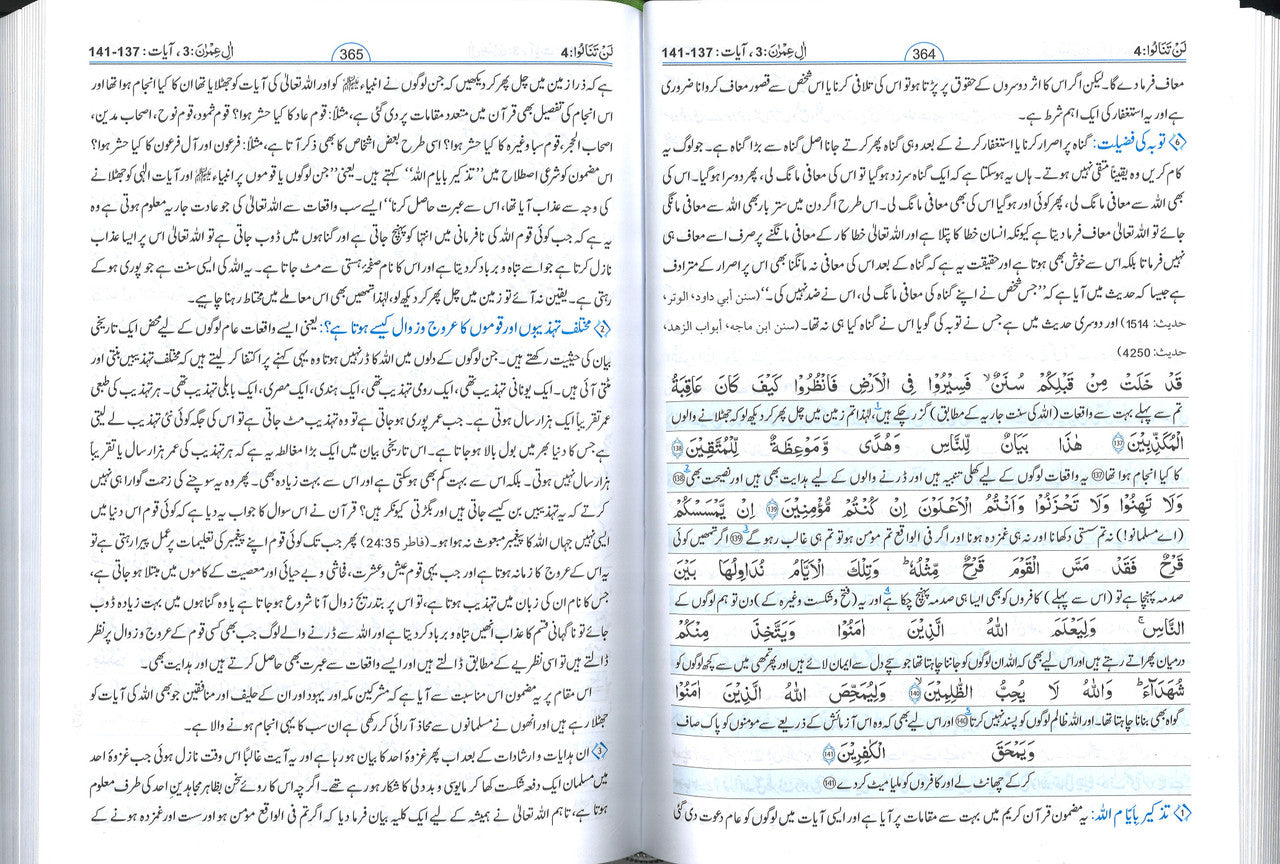 لَنْ تَنَالُوا: 4
364
اٰلِ عِمْرٰن: 3، آیات: 137-141
معاف فرما دے گا۔ لیکن اگر اس کا اثر دوسروں کے حقوق پر پڑتا ہو تو اس کی تلافی کرنا یا اس شخص سے قصور معاف کروانا ضروری
ہے اور یہ استغفار کی ایک اہم شرط ہے۔
6 توبہ کی فضیلت: گناہ پر اصرار کرنا یا استغفار کرنے کے بعد وہی گناہ پھر کرتے جانا اصل گناہ سے بڑا گناہ ہے۔ جو لوگ یہ
کام کریں وہ یقیناً متقی نہیں ہوتے۔ ہاں یہ ہو سکتا ہے کہ ایک گناہ سرزد ہو گیا تو اس کی معافی مانگ لی، پھر دوسرا ہو گیا۔ اس کی
بھی اللہ سے معافی مانگ لی، پھر کوئی اور ہو گیا اس کی بھی معافی مانگ لی۔ اس طرح اگر دن میں ستر بار بھی اللہ سے معافی مانگی
جائے تو اللہ تعالیٰ معاف فرما دیتا ہے کیونکہ انسان خطا کا پتلا ہے اور اللہ تعالیٰ خطا کار کے معافی مانگنے پر صرف اسے معاف ہی
نہیں فرماتا بلکہ اس سے خوش بھی ہوتا ہے اور حقیقت یہ ہے کہ گناہ کے بعد اس کی معافی نہ مانگنا بھی اس پر اصرار کے مترادف
ہے جیسا کہ حدیث میں آیا ہے کہ ”جس شخص نے اپنے گناہ کی معافی مانگ لی، اس نے ضد نہیں کی۔“ (سنن أبي داود، الوتر،
حدیث: 1514) اور دوسری حدیث میں ہے جس نے توبہ کی گویا اس نے گناہ کیا ہی نہ تھا۔ (سنن ابن ماجه، أبواب الزهد،
حدیث: 4250)
قَدْ خَلَتْ مِنْ قَبْلِكُمْ سُنَنٌ ۙ فَسِيْرُوْا فِى الْاَرْضِ فَانْظُرُوْا كَيْفَ كَانَ عَاقِبَةُ
تم سے پہلے بہت سے واقعات (اللہ کی سنت جاریہ کے مطابق) گزر چکے ہیں،1 لہٰذا تم زمین میں چل پھر کر دیکھ لو کہ جھٹلانے والوں
الْمُكَذِّبِيْنَ 137 هٰذَا بَيَانٌ لِّلنَّاسِ وَهُدًى وَّمَوْعِظَةٌ لِّلْمُتَّقِيْنَ 138
کا کیا انجام ہوا تھا 137 یہ واقعات لوگوں کے لیے کھلی تنبیہ ہیں اور ڈرنے والوں کے لیے ہدایت بھی ہیں اور نصیحت بھی2 138
وَلَا تَهِنُوْا وَلَا تَحْزَنُوْا وَاَنْتُمُ الْاَعْلَوْنَ اِنْ كُنْتُمْ مُّؤْمِنِيْنَ 139 اِنْ يَّمْسَسْكُمْ
(اے مسلمانو!) نہ تم سستی دکھانا اور نہ ہی غمزدہ ہونا اور اگر فی الواقع تم مومن ہو تو تم ہی غالب رہو گے3 139 اگر تمھیں کوئی
قَرْحٌ فَقَدْ مَسَّ الْقَوْمَ قَرْحٌ مِّثْلُهٗ ؕ وَتِلْكَ الْاَيَّامُ نُدَاوِلُهَا بَيْنَ
صدمہ پہنچا ہے تو (اس سے پہلے) کافروں کو بھی ایسا ہی صدمہ پہنچ چکا ہے4 اور یہ (فتح و شکست وغیرہ کے) دن تو ہم لوگوں کے
النَّاسِ ۚ وَلِيَعْلَمَ اللّٰهُ الَّذِيْنَ اٰمَنُوْا وَيَتَّخِذَ مِنْكُمْ
درمیان پھراتے رہتے ہیں اور اس لیے بھی کہ اللہ ان لوگوں کو جاننا چاہتا تھا جو سچے دل سے ایمان لائے ہیں اور پھر تمھی میں سے کچھ لوگوں کو
شُهَدَآءَ ؕ وَاللّٰهُ لَا يُحِبُّ الظّٰلِمِيْنَ ۙ 140 وَلِيُمَحِّصَ اللّٰهُ الَّذِيْنَ اٰمَنُوْا
گواہ بھی بنانا چاہتا تھا۔ اور اللہ ظالم لوگوں کو پسند نہیں کرتا5 140 اور اس لیے بھی کہ وہ اس آزمائش کے ذریعے سے مومنوں کو پاک صاف
وَيَمْحَقَ الْكٰفِرِيْنَ 141
کر کے چھانٹ لے اور کافروں کو ملیا میٹ کر دے 141
1 تذکیر بایام اللہ: یہ مضمون قرآن کریم میں بہت سے مقامات پر آیا ہے اور ایسی آیات میں لوگوں کو عام دعوت دی گئی
لَنْ تَنَالُوا: 4
365
اٰلِ عِمْرٰن: 3، آیات: 137-141
ہے کہ ذرا زمین میں چل پھر کر دیکھیں کہ جن لوگوں نے انبیاء علیہم السلام کو اور اللہ تعالیٰ کی آیات کو جھٹلایا تھا ان کا کیا انجام ہوا تھا اور
اس انجام کی تفصیل بھی قرآن میں متعدد مقامات پر دی گئی ہے، مثلاً: قوم عاد کا کیا حشر ہوا؟ قوم ثمود، قوم نوح، اصحاب مدین،
اصحاب الحجر، قوم سبا وغیرہ کا کیا حشر ہوا؟ اسی طرح بعض اشخاص کا بھی ذکر آتا ہے، مثلاً: فرعون اور آل فرعون کا کیا حشر ہوا؟
اس مضمون کو شرعی اصطلاح میں ”تذکیر بایام اللہ“ کہتے ہیں۔ یعنی ”جن لوگوں یا قوموں پر انبیاء علیہم السلام اور آیات الٰہی کو جھٹلانے
کی وجہ سے عذاب آیا تھا، اس سے عبرت حاصل کرنا“ ایسے سب واقعات سے اللہ تعالیٰ کی جو عادت جاریہ معلوم ہوتی ہے وہ
یہ ہے کہ جب کوئی قوم اللہ کی نافرمانی میں انتہا کو پہنچ جاتی ہے اور گناہوں میں ڈوب جاتی ہے تو اللہ تعالیٰ اس پر ایسا عذاب
نازل کرتا ہے جو اسے تباہ و برباد کر دیتا ہے اور اس کا نام صفحۂ ہستی سے مٹ جاتا ہے۔ یہ اللہ کی ایسی سنت ہے جو پوری ہو کے
رہتی ہے۔ یقین نہ آئے تو زمین میں چل پھر کر دیکھ لو، لہٰذا تمھیں بھی اس معاملے میں محتاط رہنا چاہیے۔
2 مختلف تہذیبوں اور قوموں کا عروج و زوال کیسے ہوتا ہے؟: یعنی ایسے واقعات عام لوگوں کے لیے محض ایک تاریخی
بیان کی حیثیت رکھتے ہیں۔ جن لوگوں کے دلوں میں اللہ کا ڈر نہیں ہوتا وہ یہی کہنے پر اکتفا کر لیتے ہیں کہ مختلف تہذیبیں بنتی اور
مٹتی آئی ہیں۔ ایک یونانی تہذیب تھی، ایک رومی تہذیب تھی، ایک ہندی، ایک مصری، ایک بابلی تہذیب تھی۔ ہر تہذیب کی طبعی
عمر تقریباً ایک ہزار سال ہوتی ہے۔ جب عمر پوری ہو جاتی ہے تو وہ تہذیب مٹ جاتی ہے تو اس کی جگہ کوئی نئی تہذیب لے لیتی
ہے جس کا دنیا بھر میں بول بالا ہو جاتا ہے۔ اس تاریخی بیان میں ایک بڑا مغالطہ یہ ہے کہ ہر تہذیب کی عمر ہزار سال یا تقریباً
ہزار سال نہیں ہوتی۔ بلکہ اس سے بہت کم بھی ہو سکتی ہے اور اس سے بہت زیادہ بھی۔ پھر وہ یہ سوچنے کی زحمت گوارا ہی نہیں
کرتے کہ یہ تہذیبیں بن کیسے جاتی ہیں اور بگڑتی کیونکر ہیں؟ قرآن نے اس سوال کا جواب یہ دیا ہے کہ کوئی قوم اس دنیا میں
ایسی نہیں جہاں اللہ کا پیغمبر مبعوث نہ ہوا ہو۔ (فاطر 24:35) پھر جب تک کوئی قوم اپنے پیغمبر کی تعلیمات پر عمل پیرا رہتی ہے تو
یہ اس کے عروج کا زمانہ ہوتا ہے اور جب یہی قوم عیش و عشرت، فحاشی و بے حیائی اور معصیت کے کاموں میں مبتلا ہو جاتی ہے،
جس کا نام ان کی زبان میں تہذیب ہوتا ہے، تو اس پر بتدریج زوال آنا شروع ہو جاتا ہے یا وہ گناہوں میں بہت زیادہ ڈوب
جائے تو ناگہانی قسم کا عذاب انھیں تباہ و برباد کر دیتا ہے اور اللہ سے ڈرنے والے لوگ جب بھی کسی قوم کے عروج و زوال پر نظر
ڈالتے ہیں تو اسی نظریے کے مطابق ڈالتے ہیں اور ایسے واقعات سے عبرت بھی حاصل کرتے ہیں اور ہدایت بھی۔
اس مقام پر یہ مضمون اس مناسبت سے آیا ہے کہ مشرکین مکہ اور یہود اور ان کے حلیف اور منافقین جو بھی اللہ کی آیات کو
جھٹلا رہے ہیں اور انھوں نے مسلمانوں سے محاذ آرائی کر رکھی ہے ان سب کا یہی انجام ہونے والا ہے۔
3 ان ہدایات و ارشادات کے بعد اب پھر غزوۂ احد کا بیان ہو رہا ہے اور یہ آیت غالباً اس وقت نازل ہوئی جب غزوۂ احد
میں مسلمان ایک دفعہ شکست کھا کر مایوسی و بددلی کا شکار ہو رہے تھے۔ اگرچہ اس کا روئے سخن بظاہر مجاہدین احد کی طرف معلوم
ہوتا ہے، تاہم اللہ تعالیٰ نے ہمیشہ کے لیے ایک کلیہ بیان فرما دیا کہ اگر تم فی الواقع مومن ہو اور سست اور غمزدہ ہونے کے